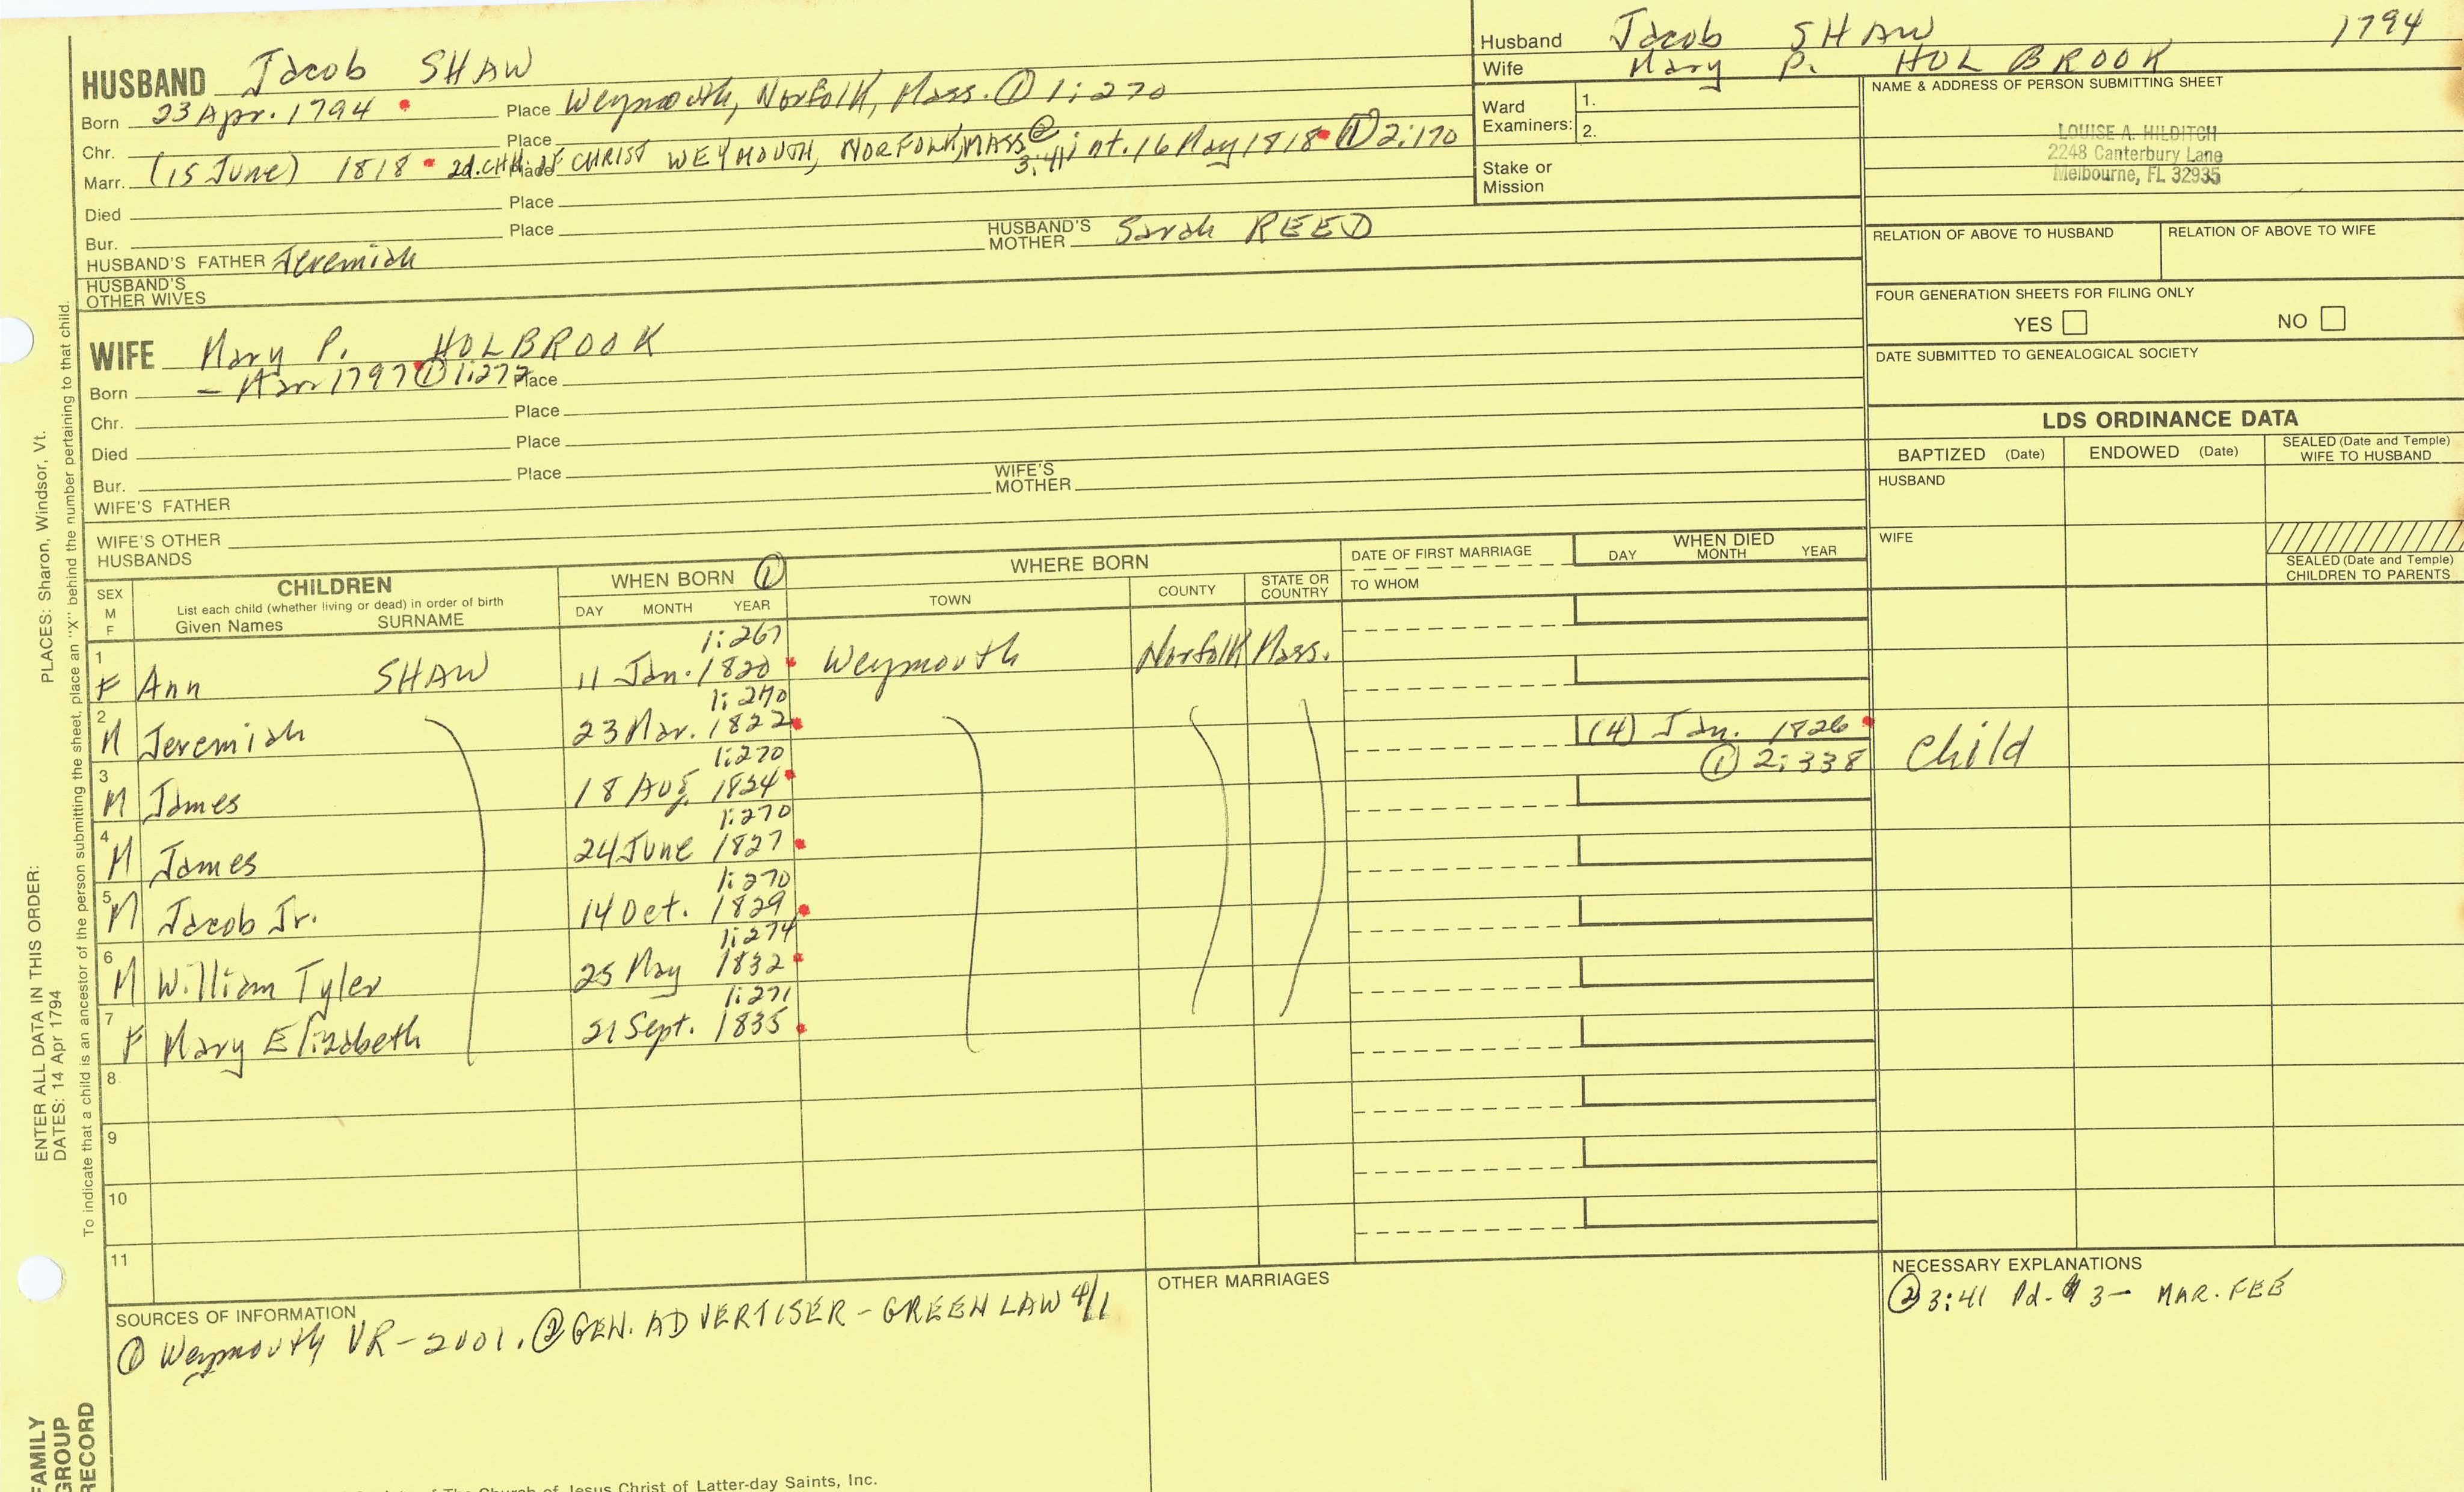 HUSBAND Jacob SHAW
Born 23 Apr. 1794 Place Weymouth, Norfolk, Mass. ① 1:270
Chr. Place
Marr. (15 June) 1818 2d. CHH. OF CHRIST WEYMOUTH, NORFOLK, MASS ② 3:41 int. 16 May 1818 ① 2:170
Place
Died Place
Bur. Place
HUSBAND'S FATHER Jeremiah HUSBAND'S MOTHER Sarah REED
HUSBAND'S OTHER WIVES
Husband Jacob SHAW 1794
Wife Mary P. HOLBROOK
Ward Examiners: 1.
2.
Stake or Mission
NAME & ADDRESS OF PERSON SUBMITTING SHEET
LOUISE A. HILDITCH
2248 Canterbury Lane
Melbourne, FL 32935
RELATION OF ABOVE TO HUSBAND RELATION OF ABOVE TO WIFE
FOUR GENERATION SHEETS FOR FILING ONLY
YES NO
DATE SUBMITTED TO GENEALOGICAL SOCIETY
WIFE Mary P. HOLBROOK
Born – Mar 1797 ① 1:272 Place
Chr. Place
Died Place
Bur. Place
WIFE'S FATHER WIFE'S MOTHER
WIFE'S OTHER HUSBANDS
LDS ORDINANCE DATA
BAPTIZED (Date) ENDOWED (Date) SEALED (Date and Temple) WIFE TO HUSBAND
HUSBAND
WIFE
SEALED (Date and Temple) CHILDREN TO PARENTS
SEX M F
CHILDREN
List each child (whether living or dead) in order of birth
Given Names SURNAME
WHEN BORN ①
DAY MONTH YEAR
WHERE BORN
TOWN COUNTY STATE OR COUNTRY
DATE OF FIRST MARRIAGE
TO WHOM
WHEN DIED
DAY MONTH YEAR
1:267
1 F Ann SHAW 11 Jan. 1820 Weymouth Norfolk Mass.
1:270
2 M Jeremiah 23 Mar. 1822 (4) Jan. 1826
① 2:338 Child
1:270
3 M James 18 Aug. 1824
1:270
4 M James 24 June 1827
1:270
5 M Jacob Jr. 14 Oct. 1829
1:274
6 M William Tyler 25 May 1832
1:271
7 F Mary Elizabeth 21 Sept. 1835
8
9
10
11
SOURCES OF INFORMATION
① Weymouth VR – 2001. ② GEN. ADVERTISER – GREENLAW 4/1
OTHER MARRIAGES
NECESSARY EXPLANATIONS
② 3:41 Pd. $3 – MAR. FEE
of Jesus Christ of Latter-day Saints, Inc.
ENTER ALL DATA IN THIS ORDER:
DATES: 14 Apr 1794 PLACES: Sharon, Windsor, Vt.
To indicate that a child is an ancestor of the person submitting the sheet, place an "X" behind the number pertaining to that child.
FAMILY
GROUP
RECORD